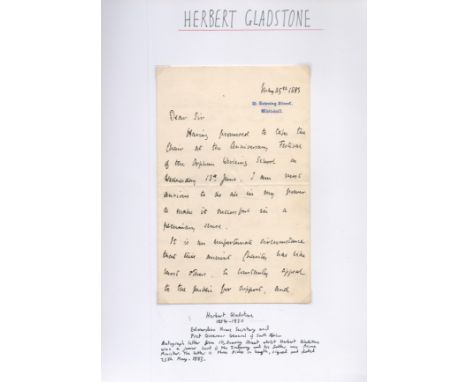 HERBERT GLADSTONE
May 25th 1883
10, Downing Street,
Whitehall.
Dear Sir
Having promised to take the
Chair at the Anniversary Festival
of the Orphan Working School on
Wednesday 13th June. I am most
anxious to do all in my power
to make it successful in a
pecuniary sense.
It is an unfortunate circumstance
that this ancient Charity has like
most others to constantly appeal
to the public for support, and
Herbert Gladstone
1854-1930
Edwardian Home Secretary and
First Governor General of South Africa
Autograph letter from 10, Downing Street whilst Herbert Gladstone
was a junior Lord of the Treasury and his father was Prime
Minister. The letter is three sides in length, signed and dated
25th May. 1883.